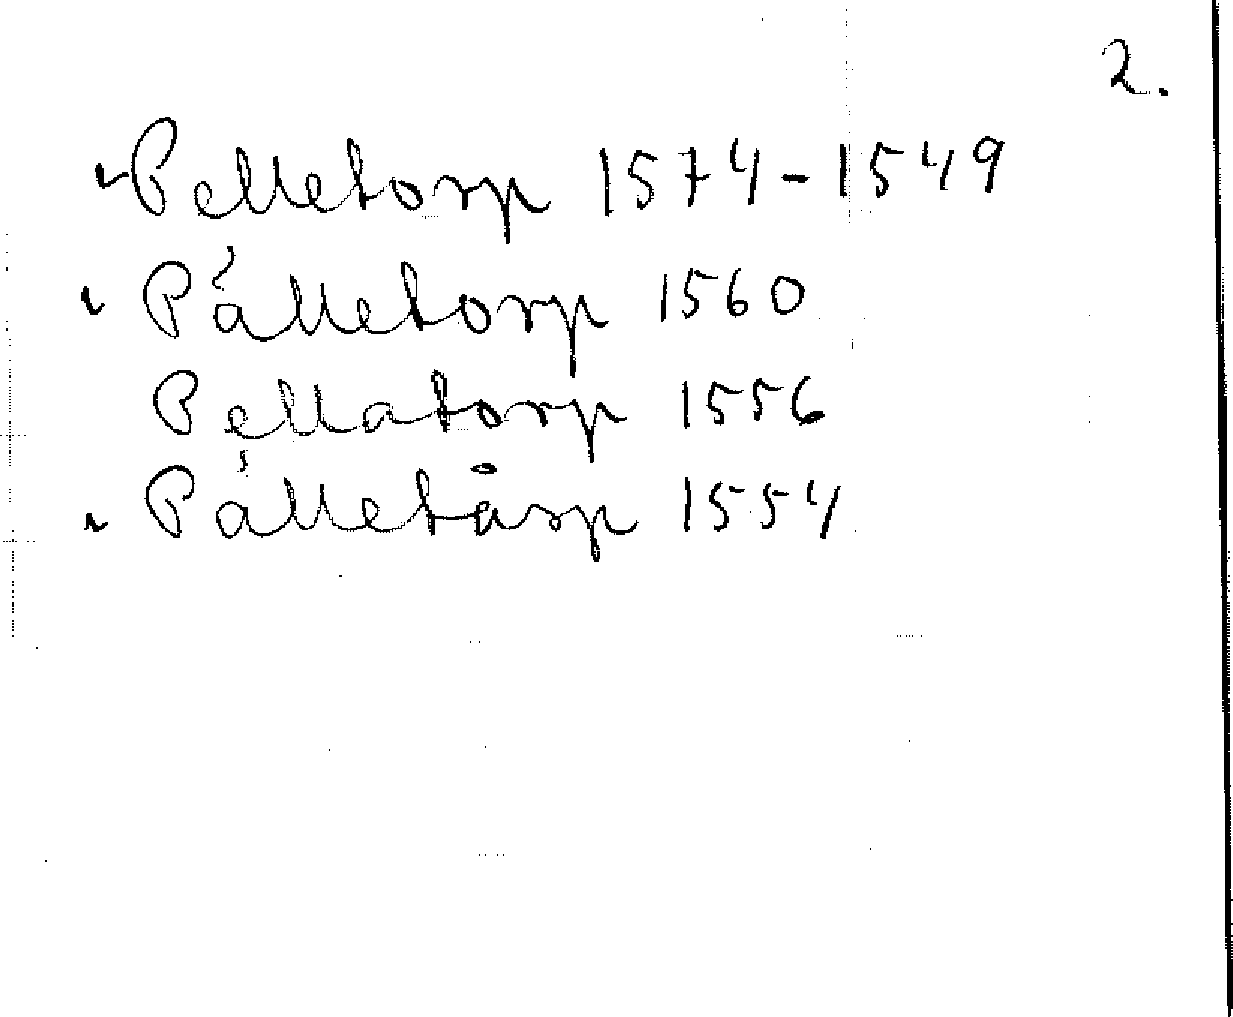 2.
Pelletorp 1574-1549
Pålletorp 1560
Pellatorp 1556
Pålletårp 1554